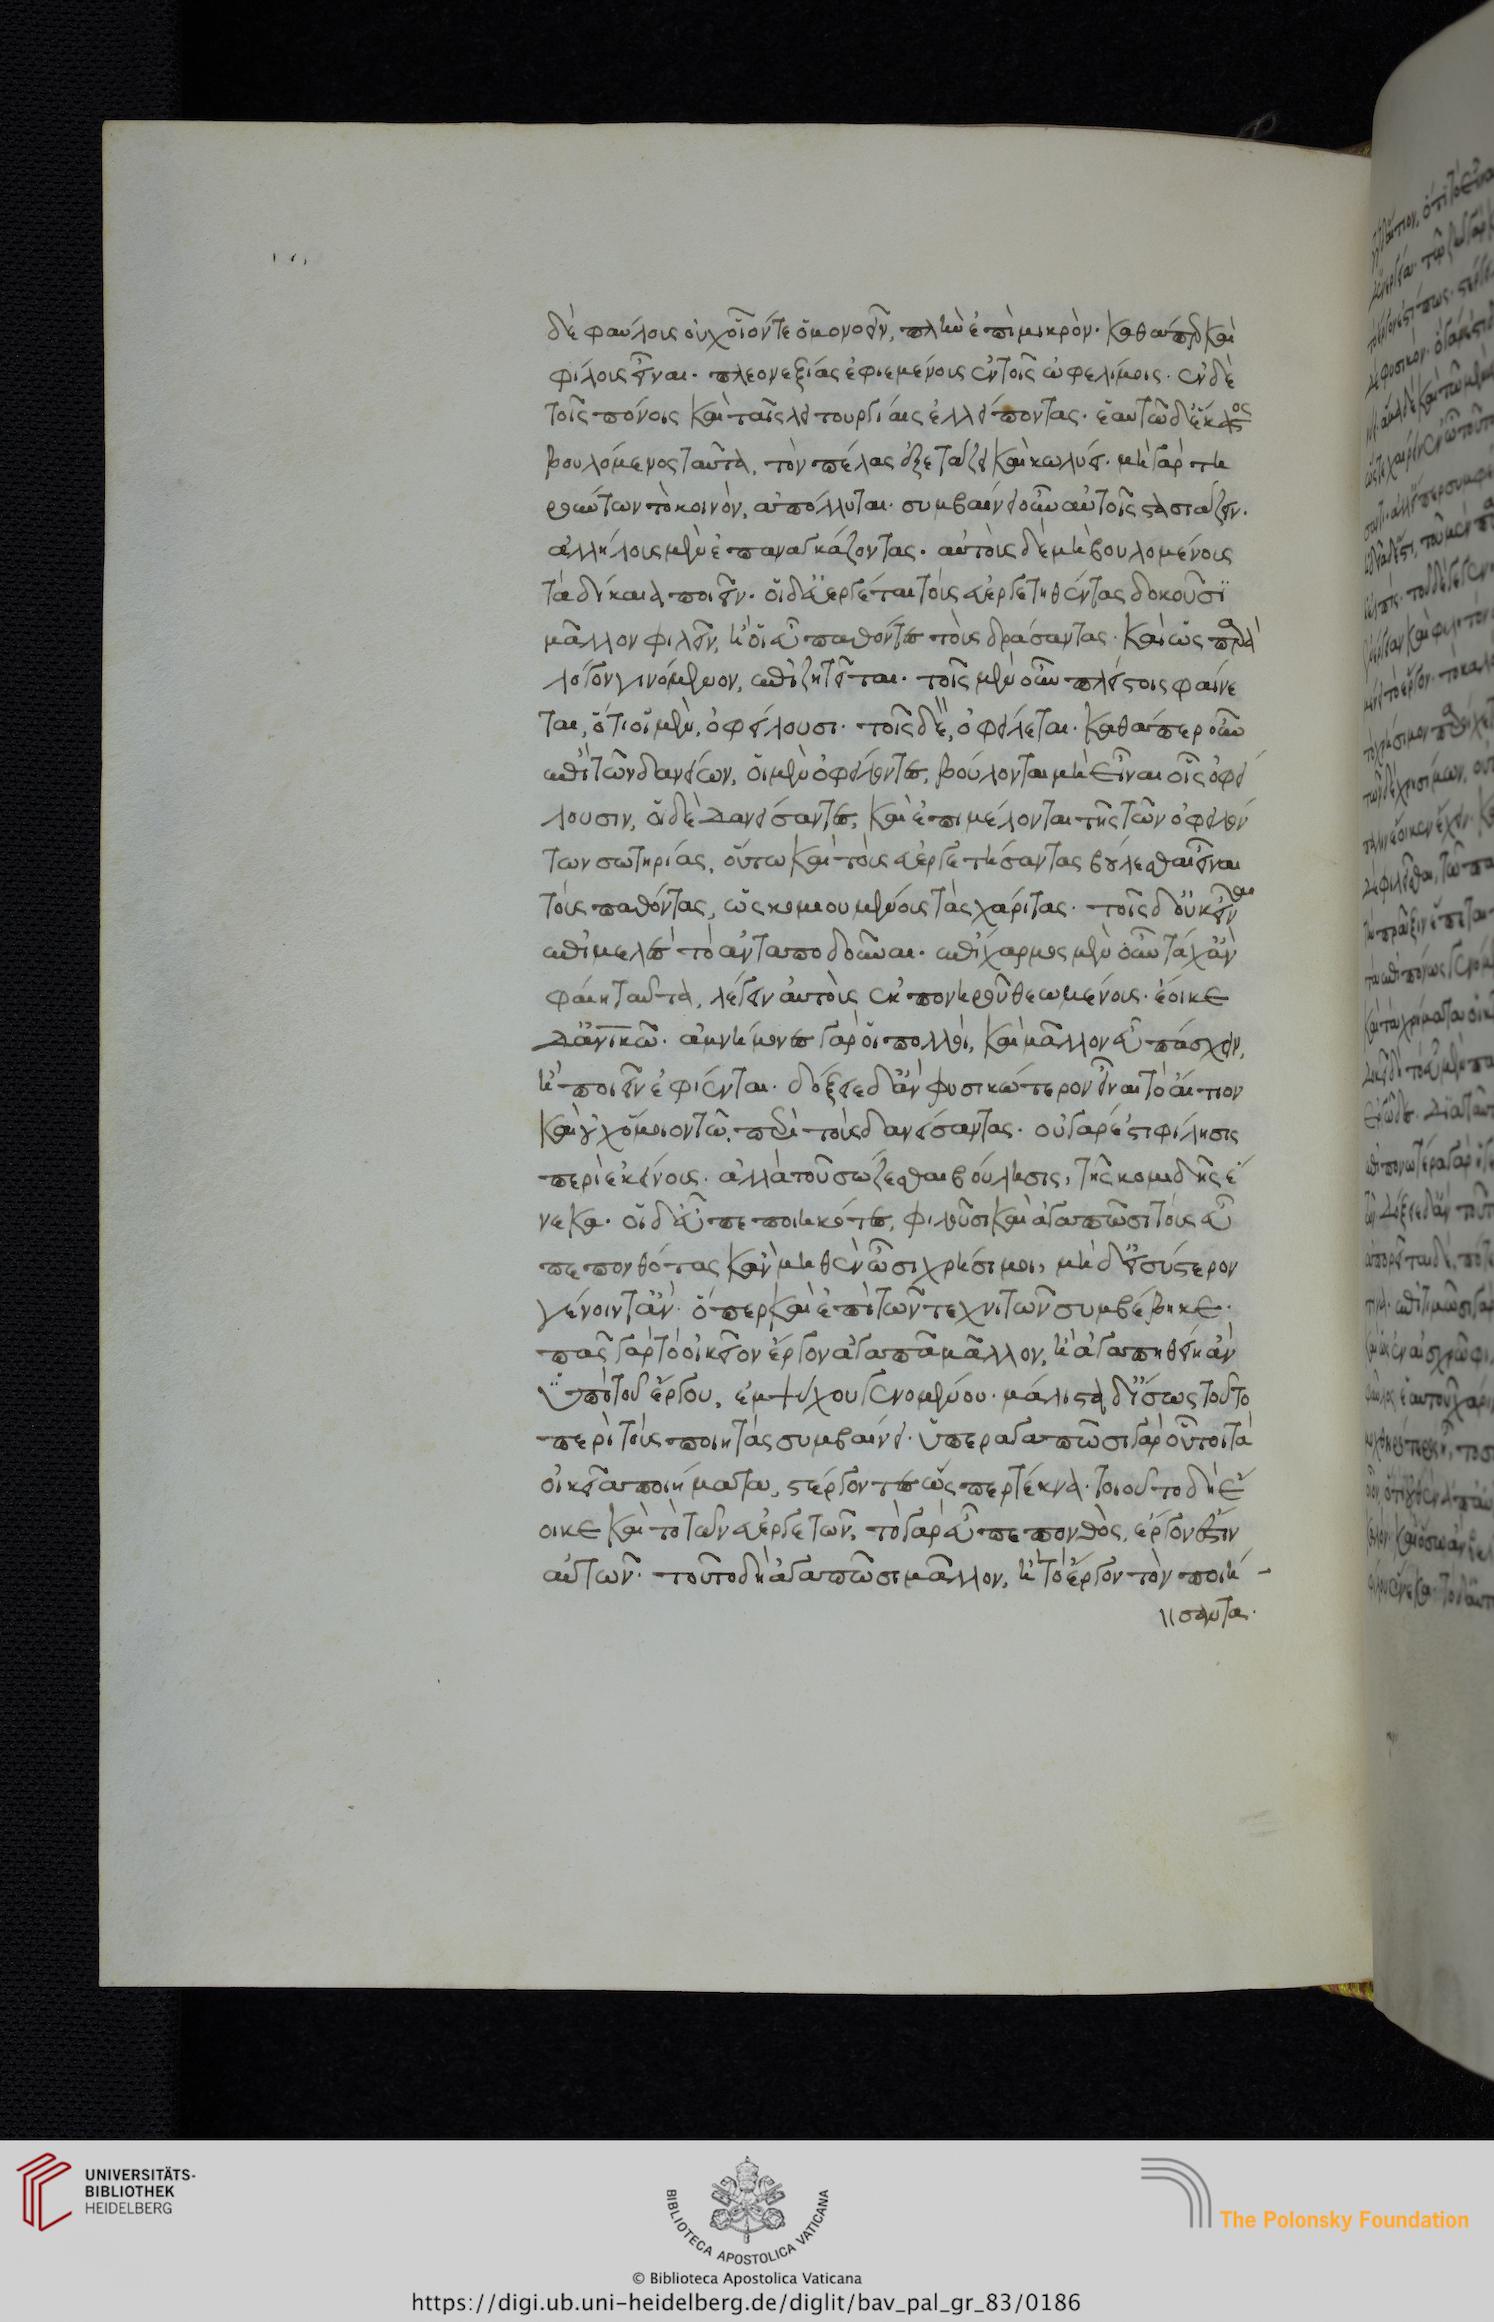 δὲ φαύλους οὐχ οἷόν τε ὁμονοεῖν, πλὴν ἐπὶ μικρὸν· καθάπερ καὶ
φίλους εἶναι· πλεονεξίας ἐφιεμένους ἐν τοῖς ὠφελίμοις· ἐν δὲ
τοῖς πόνοις καὶ ταῖς λειτουργίαις ἐλλείποντας· ἑαυτῶ δ' ἕκαστος
βουλόμενος ταῦτα, τὸν πέλας ἐξετάζει καὶ κωλύει· μὴ γὰρ τη
ρούντων τὸ κοινὸν, ἀπόλλυται· συμβαίνει οὖν αὐτοῖς στασιάζειν·
ἀλλήλους μὲν ἐπαναγκάζοντας· αὐτοὺς δὲ μὴ βουλομένους
τὰ δίκαια ποιεῖν· οἱ δ' εὐεργέται τοὺς εὐεργετηθέντας δοκοῦσι
μᾶλλον φιλεῖν, ἢ οἱ εὖ παθόντες τοὺς δράσαντας· καὶ ὡς παρὰ
λόγον γινόμενον, ἐπιζητεῖται· τοῖς μὲν οὖν πλείστοις φαίνε
ται, ὅτι οἱ μὲν, ὀφείλουσι· τοῖς δὲ, ὀφείλεται· καθάπερ οὖν
ἐπὶ τῶν δανείων, οἱ μὲν ὀφείλοντες, βούλονται μὴ εἶναι οἷς ὀφεί
λουσιν, οἱ δὲ δανείσαντες, καὶ ἐπιμέλονται τῆς τῶν ὀφειλόν
των σωτηρίας, οὕτω καὶ τοὺς εὐεργετήσαντας βούλεσθαι εἶναι
τοὺς παθόντας, ὡς κομιουμένους τὰς χάριτας· τοῖς δ' οὐκ εἶναι
ἐπιμελὲς τὸ ἀνταποδοῦναι· ἐπίχαρμος μὲν οὖν τάχ' ἂν
φαίη ταῦτα, λέγειν αὐτοὺς ἐκ πονηροῦ θεωμένους· ἔοικε
δ' ἀνθρωπικῶ· ἀμνήμονες γὰρ οἱ πολλοὶ, καὶ μᾶλλον εὖ πάσχειν,
ἢ ποιεῖν ἐφίενται· δόξειε δ' ἂν φυσικώτερον εἶναι τὸ αἴτιον
καὶ οὐχ ὅμοιον τῶ περὶ τοὺς δανείσαντας· οὐ γάρ ἐστι φίλησις
περὶ ἐκείνους· ἀλλὰ τοῦ σώζεσθαι βούλησις, τῆς κομιδῆς ἕ
νεκα· οἱ δ' εὖ πεποιηκότες, φιλοῦσι καὶ ἀγαπῶσι τοὺς εὖ
πεπονθότας κἂν μηθὲν ὦσι χρήσιμοι, μὴ δ' εἰς ὕστερον
γένοιντ' ἄν· ὅπερ καὶ ἐπὶ τῶν τεχνιτῶν συμβέβηκε·
πᾶς γὰρ τὸ οἰκεῖον ἔργον ἀγαπᾶ μᾶλλον, ἢ ἀγαπηθείη ἂν
ὑπὸ τοῦ ἔργου, ἐμψύχου γενομένου· μάλιστα δ' ἴσως τοῦτο
περὶ τοὺς ποιητὰς συμβαίνει· ὑπεραγαπῶσι γὰρ οὗτοι τὰ
οἰκεῖα ποιήματα, στέργοντες ὥσπερ τέκνα· τοιοῦτο δὴ ἔ
οικε καὶ τὸ τῶν εὐεργετῶν, τὸ γὰρ εὖ πεπονθὸς, ἔργον ἐστὶν
αὐτῶν· τοῦτο δὴ ἀγαπῶσι μᾶλλον, ἢ τὸ ἔργον τὸν ποιή-
σαντα·
UNIVERSITÄTS-
BIBLIOTHEK
HEIDELBERG
BIBLIOTECA APOSTOLICA VATICANA
The Polonsky Foundation
© Biblioteca Apostolica Vaticana
https://digi.ub.uni-heidelberg.de/diglit/bav_pal_gr_83/0186